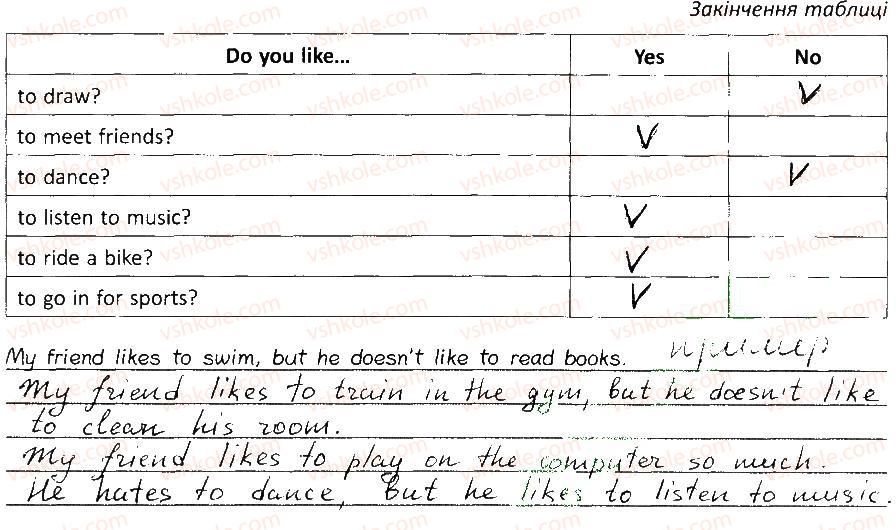 Закінчення таблиці
Do you like... Yes No
to draw? V
to meet friends? V
to dance? V
to listen to music? V
to ride a bike? V
to go in for sports? V
My friend likes to swim, but he doesn't like to read books. пример
My friend likes to train in the gym, but he doesn't like
to clean his room.
My friend likes to play on the computer so much.
He hates to dance, but he likes to listen to music.
vshkole.com